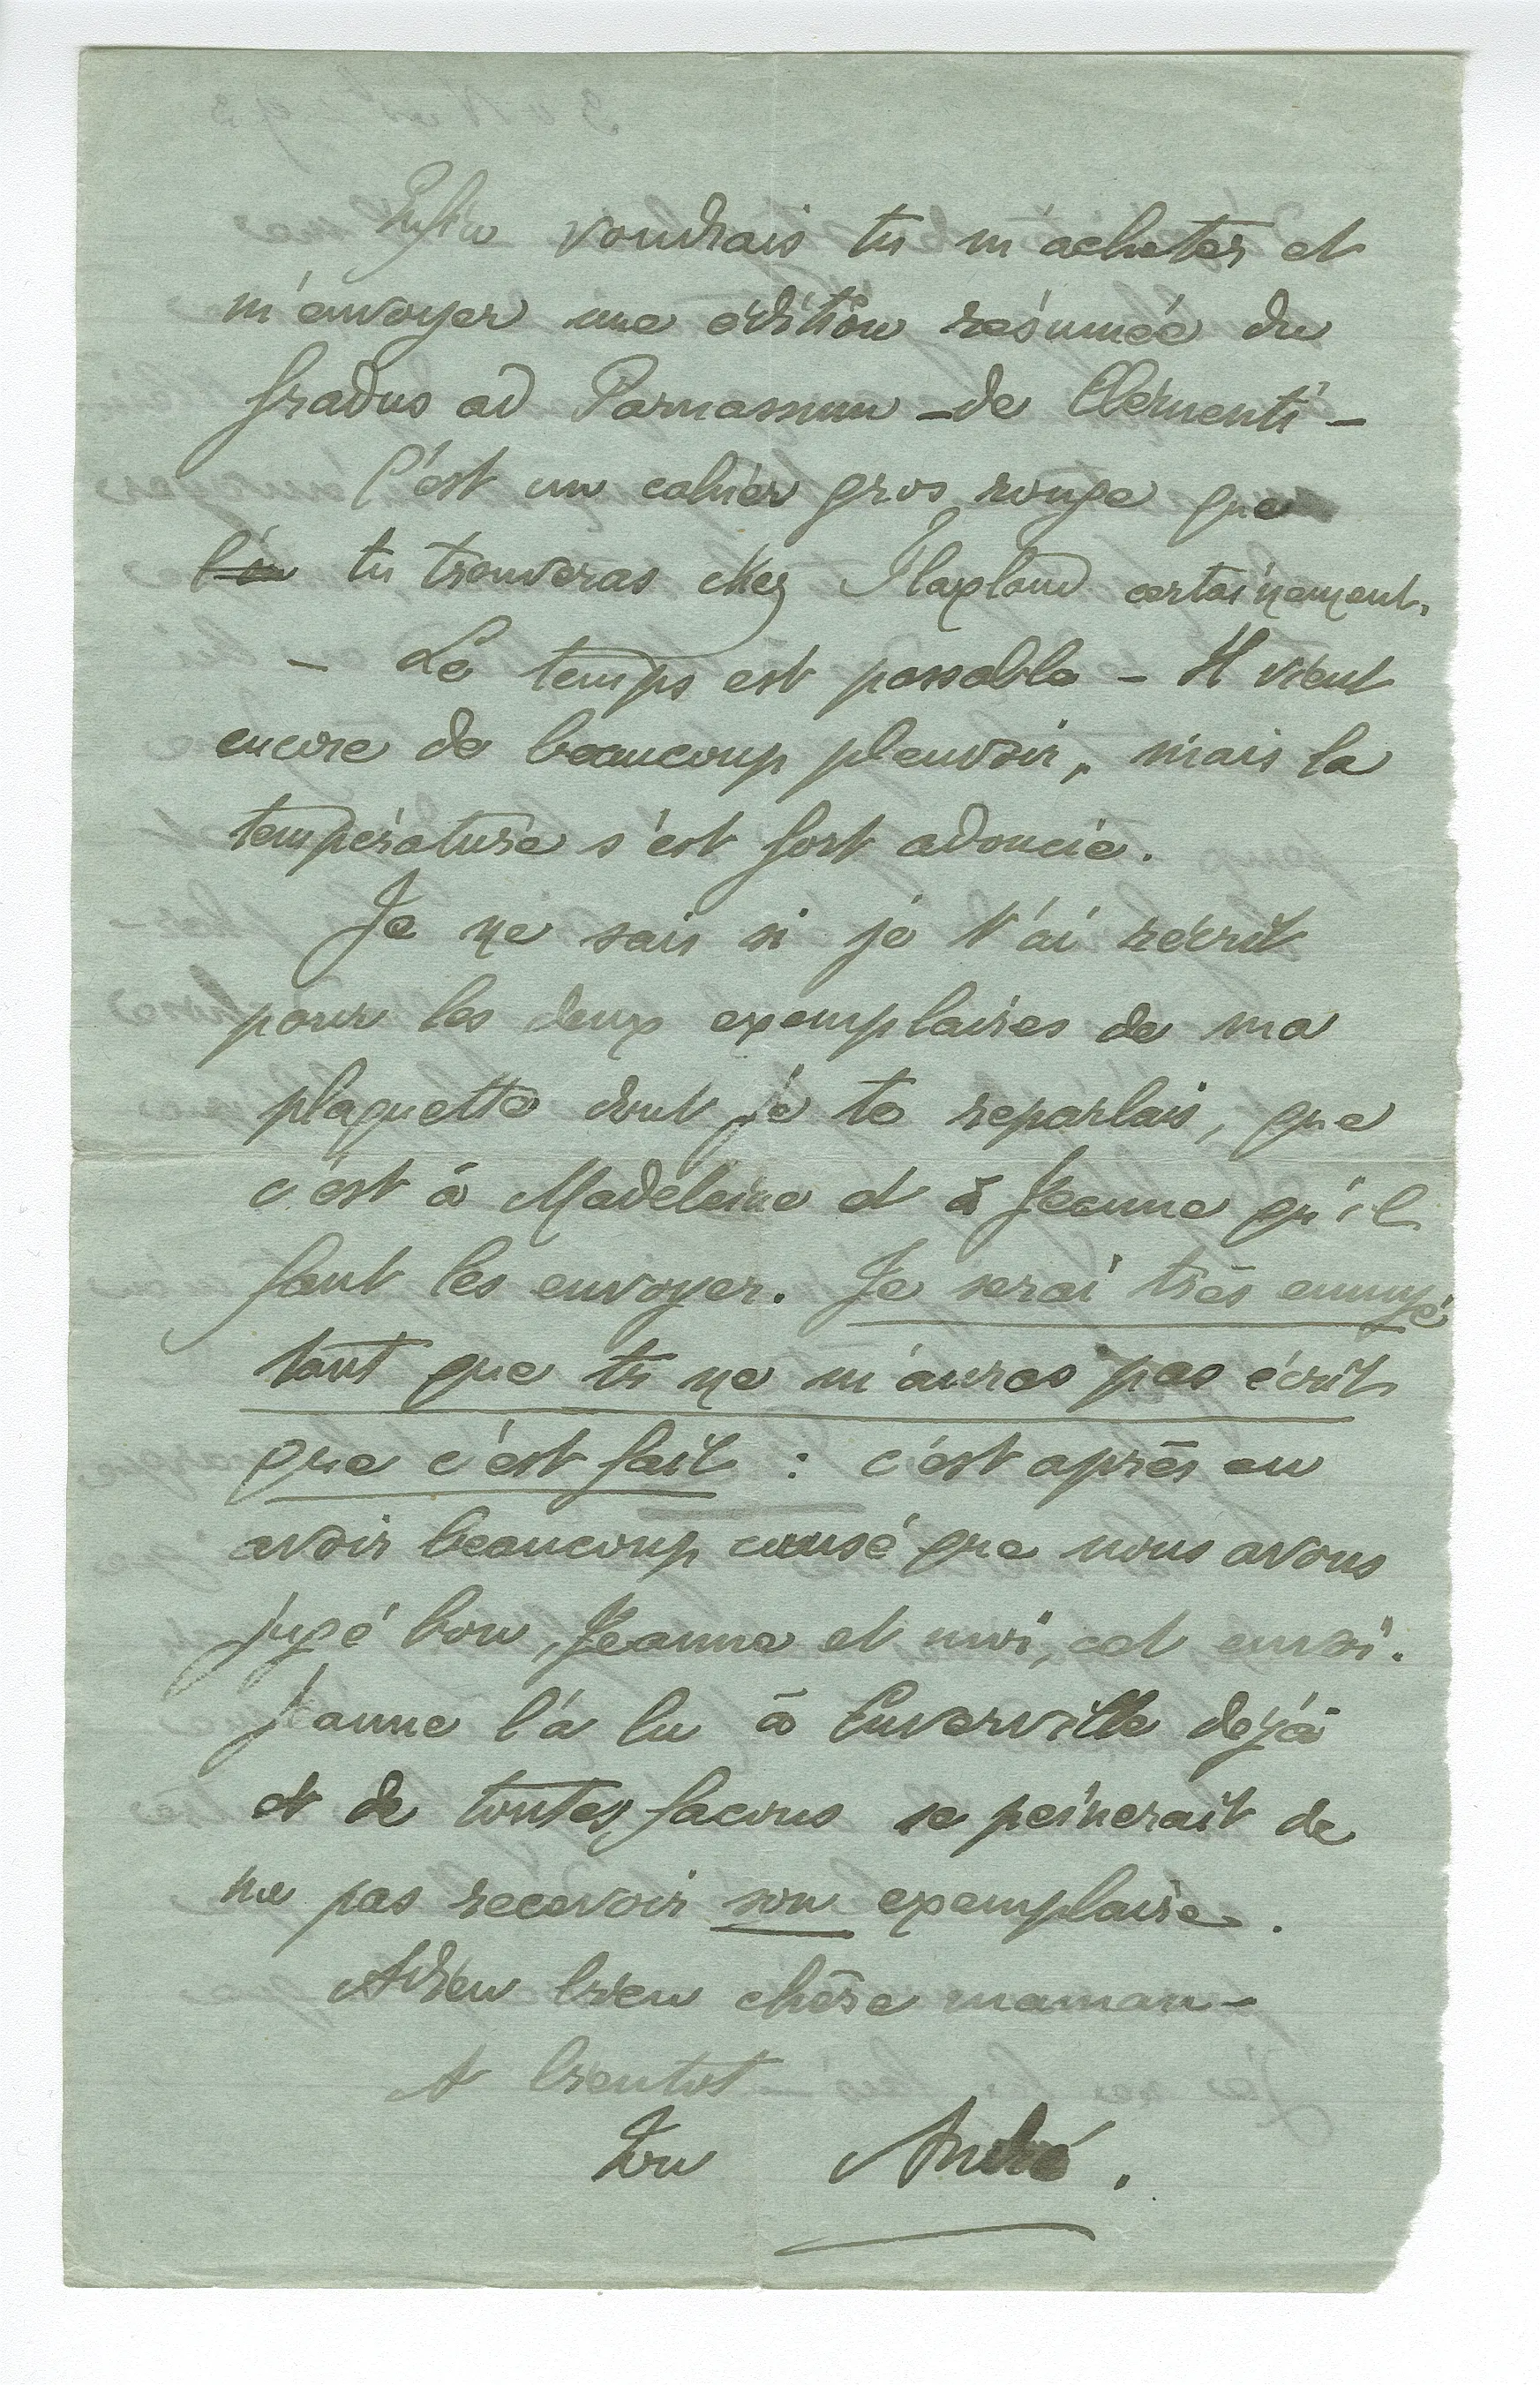 Enfin voudrais tu m'acheter et
m'envoyer une édition résumée du
Gradus ad Parnassum – de Clémenti –
C'est un cahier gros rouge que
l'on tu trouveras chez Flaxland certainement.
– Le temps est passable – Il vient
encore de beaucoup pleuvoir, mais la
température s'est fort adoucie.
Je ne sais si je t'ai récrit
pour les deux exemplaires de ma
plaquette dont je te reparlais, que
c'est à Madeleine et à Jeanne qu'il
faut les envoyer. Je serai très ennuyé
tant que tu ne m'auras pas écrit
que c'est fait : c'est après en
avoir beaucoup causé que nous avons
jugé bon, Jeanne et moi, cet envoi.
Jeanne l'a lu à Cuverville dejà
et de toutes facons se peinerait de
ne pas recevoir son exemplaire.
Adieu bien chère maman –
A bientot
Ton André.